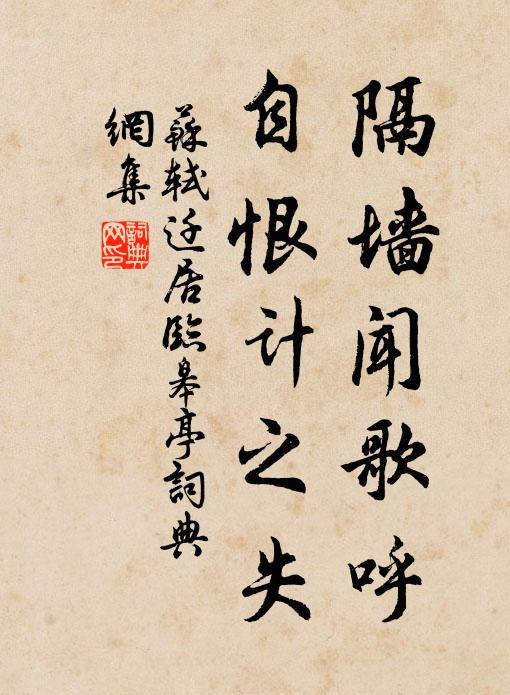 隔墙闻歌呼
自恨计之失
蘇軾迁居臨皋亭詞典
網集
詞典网印